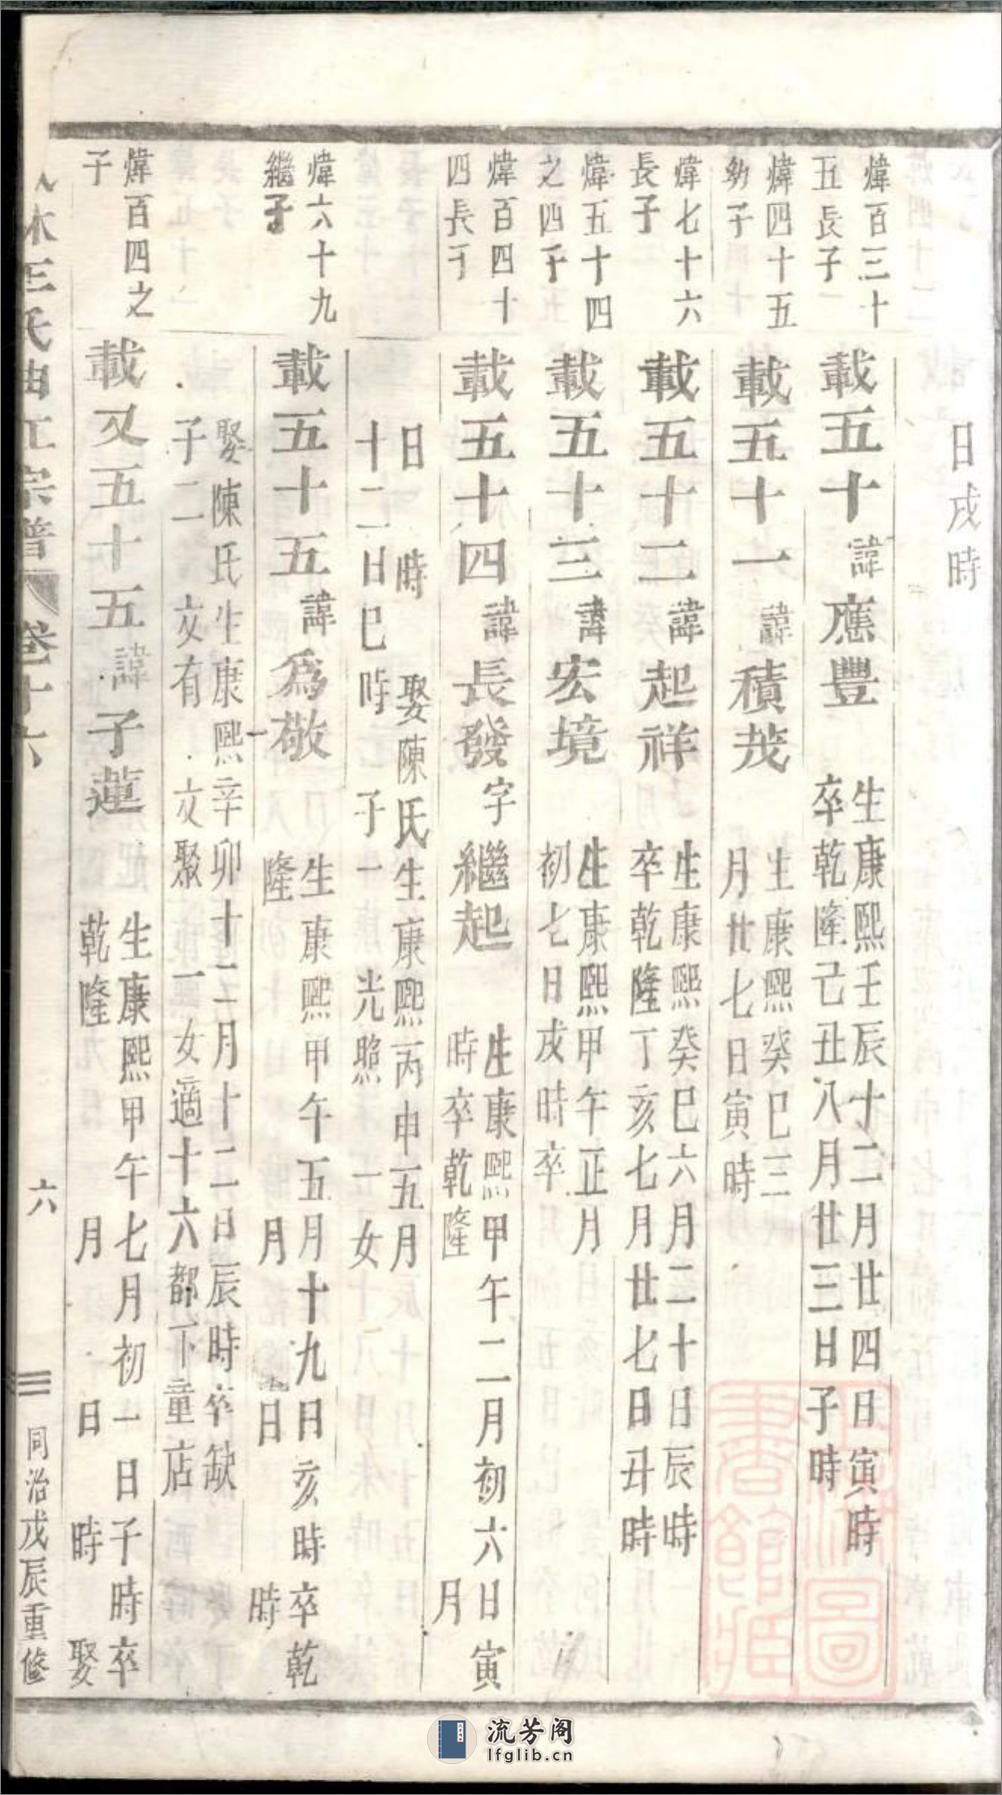 日戌時
煒百三十
五長子
載五十諱應豐
生康熙壬辰十二月廿四日寅時
卒乾隆己丑八月廿三日子時
煒四十五
幼子
載五十一諱積茂
生康熙癸巳三
月廿七日寅時
煒七十六
長子
載五十二諱起祥
生康熙癸巳六月二十日辰時
卒乾隆丁亥七月廿七日丑時
煒五十四
之四子
載五十三諱宏境
生康熙甲午正月
初七日戌時卒
煒百四十
四長子
載五十四諱長發字繼起
生康熙甲午二月初六日寅
時卒乾隆 月
日 時 娶陳氏生康熙丙申五月
十二日巳時 子一 光照 一女
煒六十九
繼子
載五十五諱為敬
生康熙甲午五月十九日亥時卒乾
隆 月 日 時
娶陳氏生康熙辛卯十二月十二日辰時卒缺
子二 文有 文聚 一女適十六都下童店
煒百四之
子
載又五十五諱子蓮
生康熙甲午七月初一日子時卒
乾隆 月 日 時 娶
王氏 宗譜 卷十六
六
同治戊辰重修
圖
書館
流芳阁
lfglib.cn